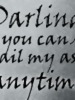 Darling
you can
ail my as
anytim